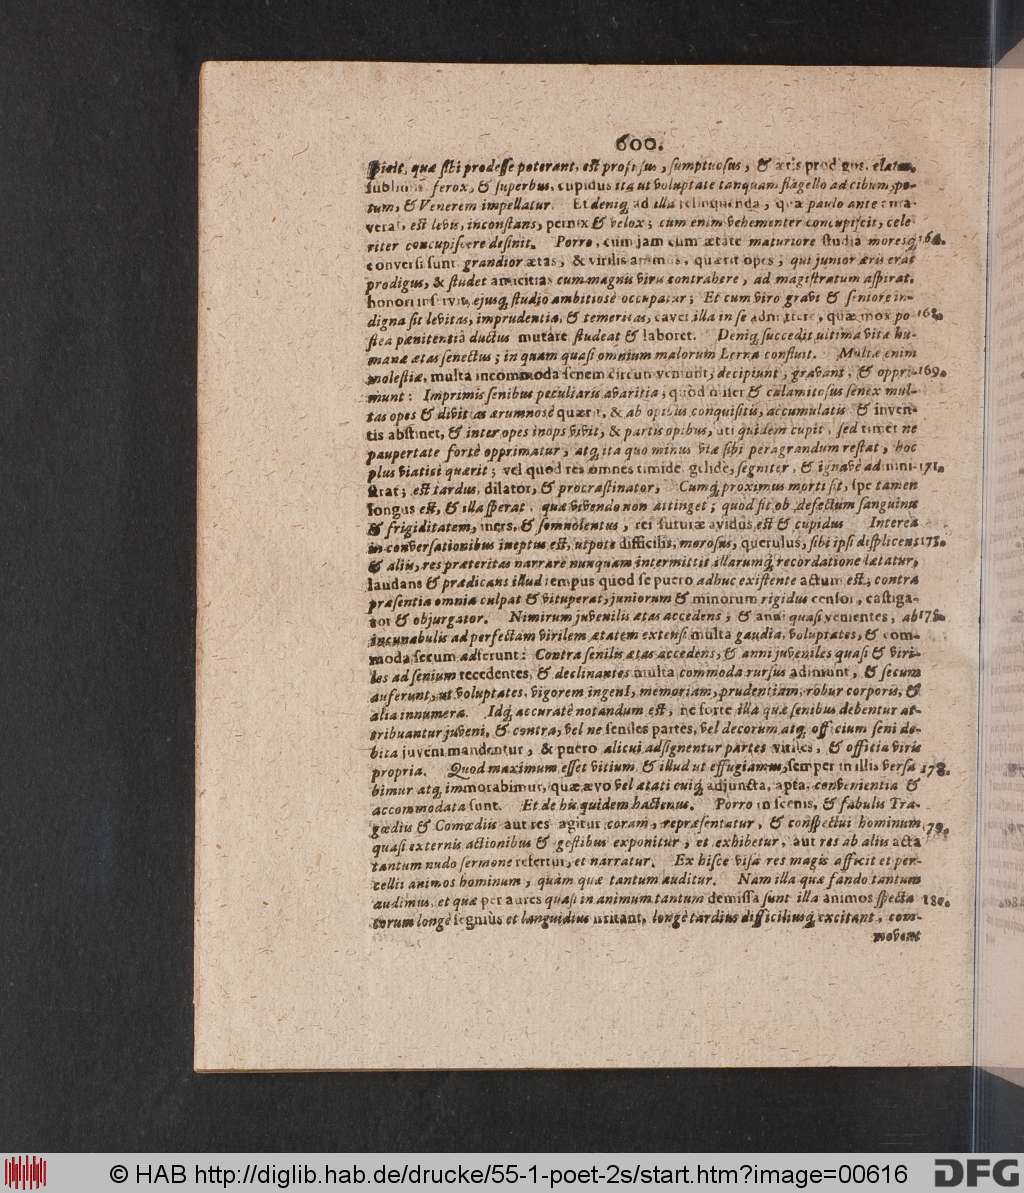 600.
spicit, quæ sibi prodesse poterant, est profusus, sumptuosus, & æris prodigus, elatus,
sublimis, ferox, & superbus, cupidus ita ut voluptate tanquam flagello ad cibum, po-
tum, & Venerem impellatur. Et deniq; ad illa relinquenda, quæ paulo ante ama-
verat, est levis, inconstans, pernix & velox; cum enim vehementer concupiscit, cele
riter concupiscere desinit. Porro, cum jam cum ætate maturiore studia moresq; 164.
conversi sunt grandior ætas, & virilis animus, quærit opes; qui junior æris erat
prodigus, & studet amicitias cum magnis viris contrahere, ad magistratum aspirat.
honori inservit, ejusq; studio ambitiosè occupatur; Et cum viro gravi & seniore in-
digna sit levitas, imprudentia, & temeritas, cavet illa in se admittere, quæ mox po
stea pænitentiâ ductus mutare studeat & laboret. Deniq; succedit ultima vitæ hu-
manæ ætas senectus; in quam quasi omnium malorum Lerna confluit. Multæ enim
molestiæ, multa incommoda senem circumveniunt, decipiunt, gravant, & oppri- 169.
munt: Imprimis senibus peculiaris avaritia; quod miser & calamitosus senex mul-
tas opes & divitias ærumnosè quærit, & ab opibus conquisitis, accumulatis & inven-
tis abstinet, & inter opes inops vivit, & partis opibus, uti quidem cupit, sed timet ne
paupertate fortè opprimatur, atq; ita quo minus viæ sibi peragrandum restat, hoc
plus viatici quærit; vel quod res omnes timidè, gelidè, segniter, & ignavè admini- 171.
strat; est tardus, dilator, & procrastinator, Cumq; proximus morti sit, spe tamen
longus est, & illa sperat, quæ vivendo non attinget; quod sit ob defectum sanguinis
& frigiditatem, iners, & somnolentus, rei futuræ avidus est & cupidus Interea
in conversationibus ineptus est, utpote difficilis, morosus, querulus, sibi ipsi displicens 173.
& aliis, res præteritas narrare nunquam intermittit illarumq; recordatione lætatur,
laudans & prædicans illud tempus quod se puero adhuc existente actum est, contra
præsentia omnia culpat & vituperat, juniorum & minorum rigidus censor, castiga-
tor & objurgator. Nimirum juvenilis ætas accedens, & anni quasi venientes, ab 175.
incunabulis ad perfectam virilem ætatem extensi multa gaudia, voluptates, & com-
moda secum adferunt: Contra senilis ætas accedens, & anni juveniles quasi & viri-
les ad senium recedentes, & declinantes multa commoda rursus adimunt, & secum
auferunt, ut voluptates, vigorem ingenI, memoriam, prudentiam, robur corporis, &
alia innumera. Idq; accuratè notandum est, ne forte illa quæ senibus debentur at-
tribuantur juveni, & contra, vel ne seniles partes, vel decorum atq; officium seni de-
bita juveni mandentur, & puero alicui adsignentur partes viriles, & officia viris
propria. Quod maximum esset vitium & illud ut effugiamus, semper in illis versa 178.
bimur atq; immorabimur, quæ ævo vel ætati cuiq; adjuncta, apta, convenientia &
accommodata sunt. Et de his quidem hactenus. Porro in scenis, & fabulis Tra-
gœdiis & Comœdiis aut res agitur coram, repræsentatur, & conspectui hominum 179.
quasi externis actionibus & gestibus exponitur, et exhibetur, aut res ab aliis acta
tantum nudo sermone refertur, et narratur. Ex hisce visa res magis afficit et per-
cellit animos hominum, quàm quæ tantum auditur. Nam illa quæ fando tantum
audimus, et quæ per aures quasi in animum tantum demissa sunt illa animos specta 180.
torum longè segnius et languidius irritant, longè tardius difficiliusq; excitant, com-
movent
© HAB http://diglib.hab.de/drucke/55-1-poet-2s/start.htm?image=00616
DFG